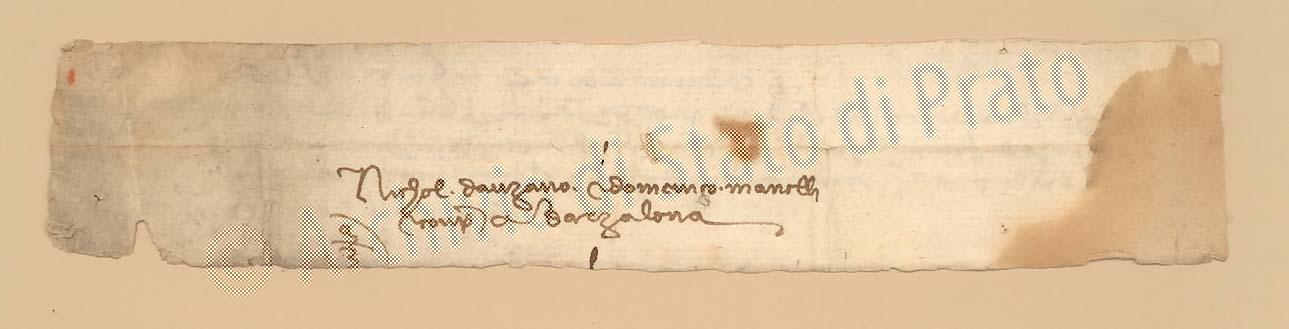 Nichol. dauzano. e domenico. manelli
e conp a Barzalona
© Archivio di Stato di Prato